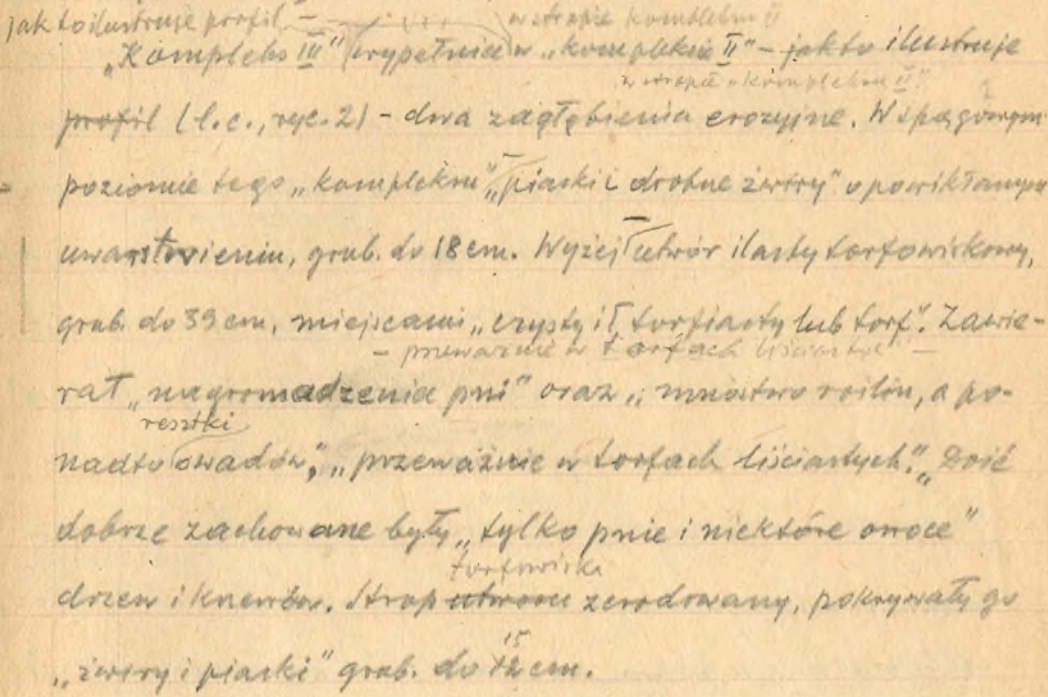 jak to ilustruje profil – w stropie kompleksu II
„Kompleks III” wypełnia w „kompleksie II” – jak to ilustruje
w stropie „kompleksu II”
profil (l.c., ryc. 2) – dwa zagłębienia erozyjne. W spągowym
poziomie tego „kompleksu” „piaski i drobne żwiry” o powikłanym
uwarstwieniu, grub. do 18 cm. Wyżej utwór ilasty torfowiskowy,
grub. do 39 cm, miejscami „czysty ił torfiasty lub torf”. Zawie-
– przeważnie w torfach liściastych” –
rał „nagromadzenia pni” oraz „mnóstwo roślin, a po-
resztki
nadto owadów”, „przeważnie w torfach liściastych”. „Dość
dobrze zachowane były „tylko pnie i niektóre owoce”
torfowiska
drzew i krzewów. Strop utworu zerodowany, pokrywały go
15
„żwiry i piaski” grub. do 12 cm.